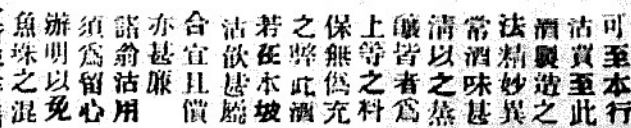 可至本行
沽買至此
酒製造之
法精妙異
常酒味甚
清以之蒸
釀皆者爲
上等之料
保無僞充
之弊此酒
若在本坡
沽飮甚屬
合宜且價
亦甚廉
諸翁沽用
須爲留心
辦明以免
魚珠之混